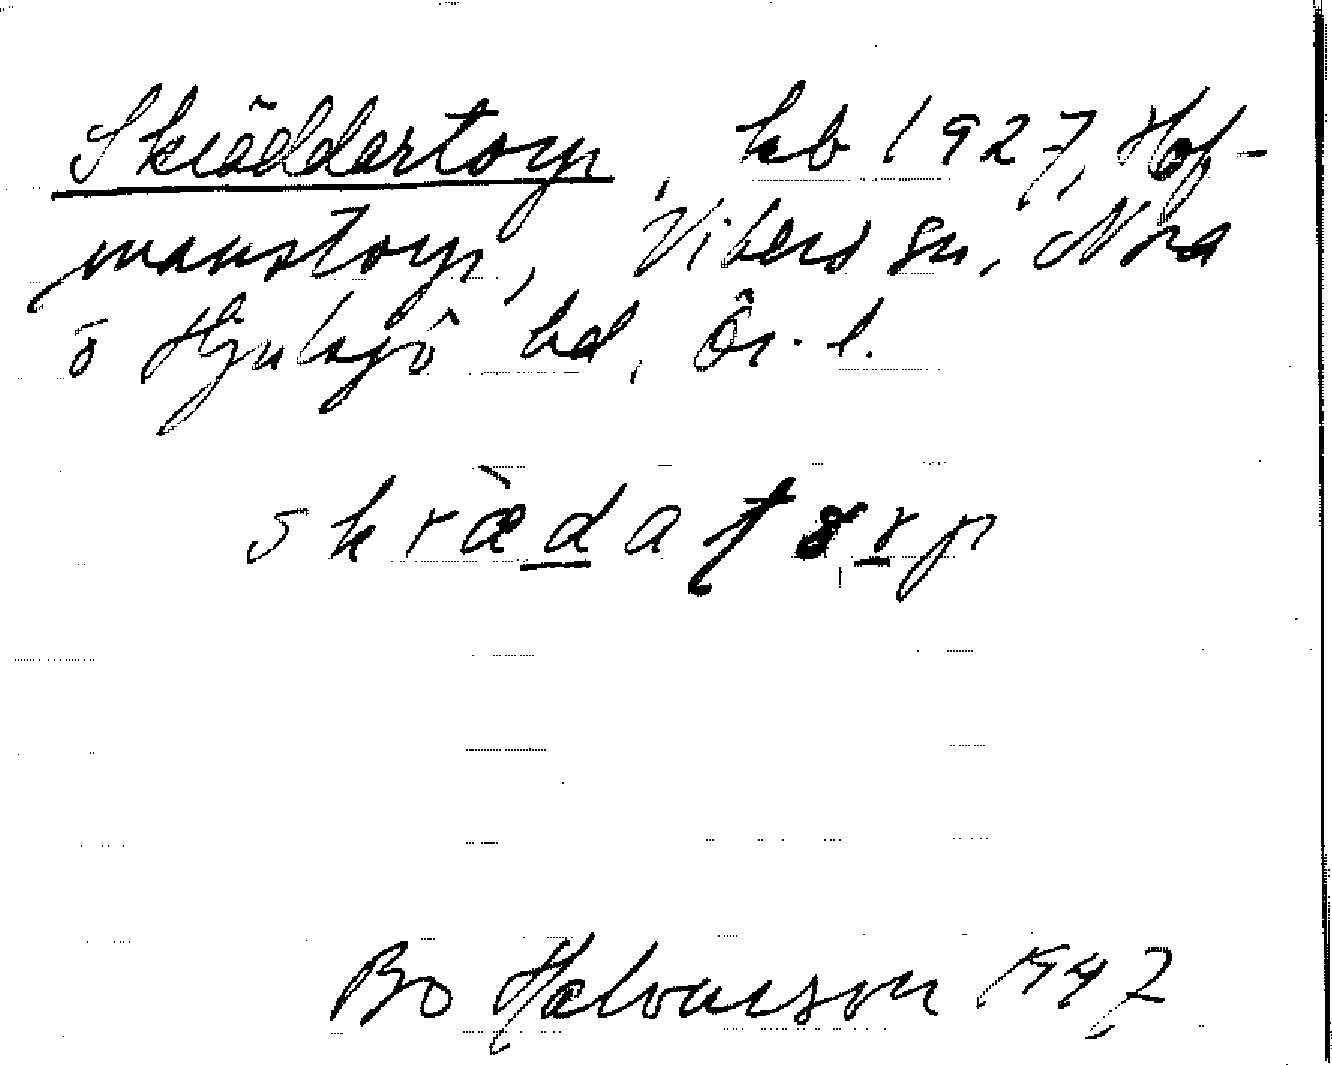 Skräddartorp, kb 1927, Hof-
manstorp, Vikers sn, Nora
o Hjulsjö bd, Ör. l.
skrædatorp
Bo Halvarson 1947